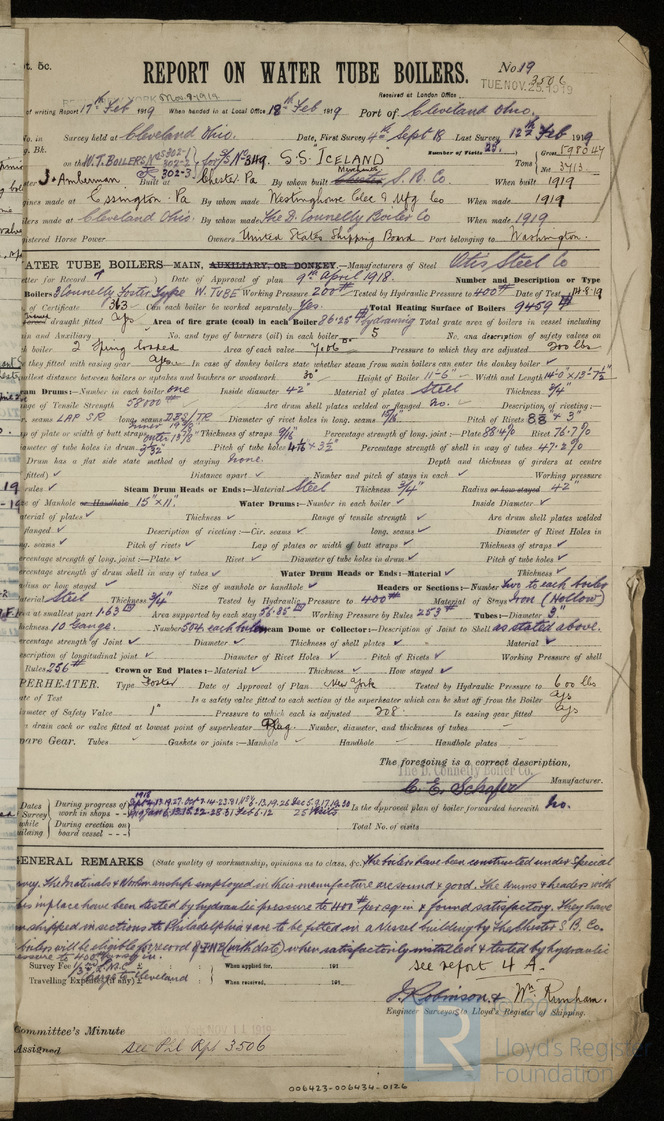 pt. &c.
REPORT ON WATER TUBE BOILERS. No 19
3506
Received at London Office TUE NOV. 25. 1919
Nov 9-1919
of writing Report 17th Feb 1919 When handed in at Local Office 18th Feb 1919 Port of Cleveland Ohio.
No. in Survey held at Cleveland Ohio. Date, First Survey 4th Sept 18 Last Survey 12th Feb 1919
g. Bk. Number of Visits 25.
on the W.T. BOILERS Nos 302-1 302-2 & 302-3 for S/S No 3119. S.S. "ICELAND" Tons Gross 5980.47
Net 3713
J. Amberman Built at Chester Pa By whom built Merchants S. B. Co. When built 1919
gines made at Essington Pa By whom made Westinghouse Elec & Mfg Co When made 1919
ilers made at Cleveland Ohio. By whom made The D. Connelly Boiler Co When made 1919
gistered Horse Power Owners United States Shipping Board Port belonging to Washington.
WATER TUBE BOILERS—MAIN, AUXILIARY, OR DONKEY.—Manufacturers of Steel Otis Steel Co
etter for Record Date of Approval of plan 9th April 1918. Number and Description or Type
Boilers Connelly Foster Type W. TUBE Working Pressure 200# Tested by Hydraulic Pressure to 400# Date of Test
of Certificate 363 Can each boiler be worked separately Yes. Total Heating Surface of Boilers 9459
draught fitted Yes Area of fire grate (coal) in each Boiler 86.25 Total grate area of boilers in vessel including
in and Auxiliary No. and type of burners (oil) in each boiler 5 No. and description of safety valves on
h boiler 2 Spring loaded Area of each valve 7.06 Pressure to which they are adjusted 200 lbs
they fitted with easing gear Yes In case of donkey boilers state whether steam from main boilers can enter the donkey boiler ✓
allest distance between boilers or uptakes and bunkers or woodwork 30" Height of Boiler 11'-6" Width and Length 14'-0" x 13'-7½"
am Drums:—Number in each boiler one Inside diameter 42" Material of plates Steel Thickness ¾"
nge of Tensile Strength 58000# Are drum shell plates welded or flanged no. Description of riveting:—
r. seams LAP SR long. seams DBS/TR Diameter of rivet holes in long. seams 15/16 Pitch of Rivets 8⅝ & 3"
ap of plate or width of butt straps Thickness of straps 9/16 Percentage strength of long. joint:—Plate 88.4% Rivet 76.7%
iameter of tube holes in drum Pitch of tube holes Percentage strength of shell in way of tubes 47.2%
Drum has a flat side state method of staying none. Depth and thickness of girders at centre
fitted) ✓ Distance apart ✓ Number and pitch of stays in each ✓ Working pressure
rules ✓ Steam Drum Heads or Ends:—Material Steel Thickness ¾" Radius or how stayed 42"
e of Manhole or Handhole 15" x 11". Water Drums:—Number in each boiler ✓ Inside Diameter ✓
aterial of plates ✓ Thickness ✓ Range of tensile strength ✓ Are drum shell plates welded
flanged ✓ Description of riveting:—Cir. seams ✓ long. seams ✓ Diameter of Rivet Holes in
g. seams ✓ Pitch of rivets ✓ Lap of plates or width of butt straps ✓ Thickness of straps ✓
ercentage strength of long. joint:—Plate ✓ Rivet ✓ Diameter of tube holes in drum ✓ Pitch of tube holes ✓
ercentage strength of drum shell in way of tubes ✓ Water Drum Heads or Ends:—Material ✓ Thickness ✓
adius or how stayed ✓ Size of manhole or handhole ✓ Headers or Sections:—Number two to each boiler
aterial Steel Thickness ¾" Tested by Hydraulic Pressure to 400# Material of Stays Iron (Hollow)
rea at smallest part 1.63 Area supported by each stay 56.85 Working Pressure by Rules 253# Tubes:—Diameter 3"
hickness 10 Gauge. Number 504 each boiler Steam Dome or Collector:—Description of Joint to Shell as stated above.
ercentage strength of Joint ✓ Diameter ✓ Thickness of shell plates ✓ Material ✓
escription of longitudinal joint ✓ Diameter of Rivet Holes ✓ Pitch of Rivets ✓ Working Pressure of shell
Rules 256# Crown or End Plates:—Material ✓ Thickness ✓ How stayed ✓
PERHEATER. Type Foster Date of Approval of Plan New York Tested by Hydraulic Pressure to 600 lbs
ate of Test Is a safety valve fitted to each section of the superheater which can be shut off from the Boiler Yes
iameter of Safety Valve 1" Pressure to which each is adjusted 208 Is easing gear fitted Yes
a drain cock or valve fitted at lowest point of superheater Plug Number, diameter, and thickness of tubes
pare Gear. Tubes Gaskets or joints:—Manhole Handhole Handhole plates
The foregoing is a correct description,
The D. Connelly Boiler Co.
C. E. Schafer Manufacturer.
Dates Survey while building
During progress of work in shops - -
25 Visits
Is the approved plan of boiler forwarded herewith No.
During erection on board vessel - - -
Total No. of visits
GENERAL REMARKS (State quality of workmanship, opinions as to class, &c. The boilers have been constructed under Special
vey. The Materials & Workmanship employed in their manufacture are sound & good. The drums & headers with
es in place have been tested by hydraulic pressure to 400# per sq in & found satisfactory. They have
n shipped in sections to Philadelphia & are to be fitted in a Vessel building by the Chester S B. Co.
boilers will be eligible for record (with date) when satisfactorily installed & tested by hydraulic
pressure to 400 lbs sq in.
see report 4 A.
Survey Fee When applied for, 191
Travelling Expenses (if any) Cleveland When received, 191
J. Robinson & Wm Runham.
Engineer Surveyors to Lloyd's Register of Shipping.
Committee's Minute NOV 11 1919
Assigned see Phl Rpt 3506
LR Lloyd's Register Foundation
006423-006434-0126